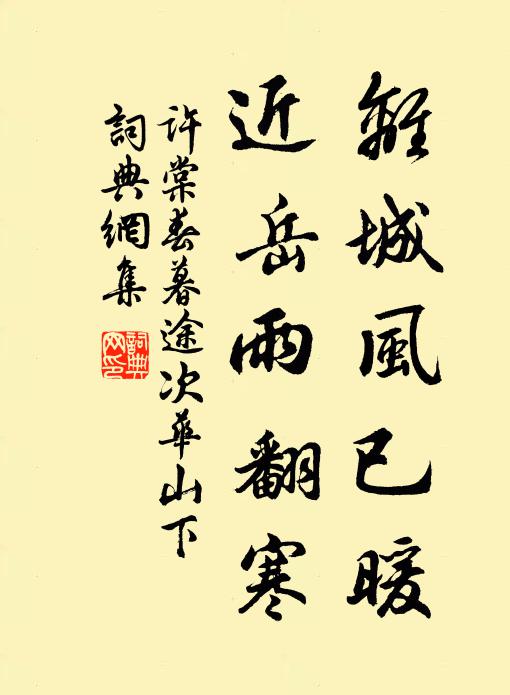 離城風已暖
近岳雨翻寒
許棠春暮途次華山下
詞典網集
詞典網印